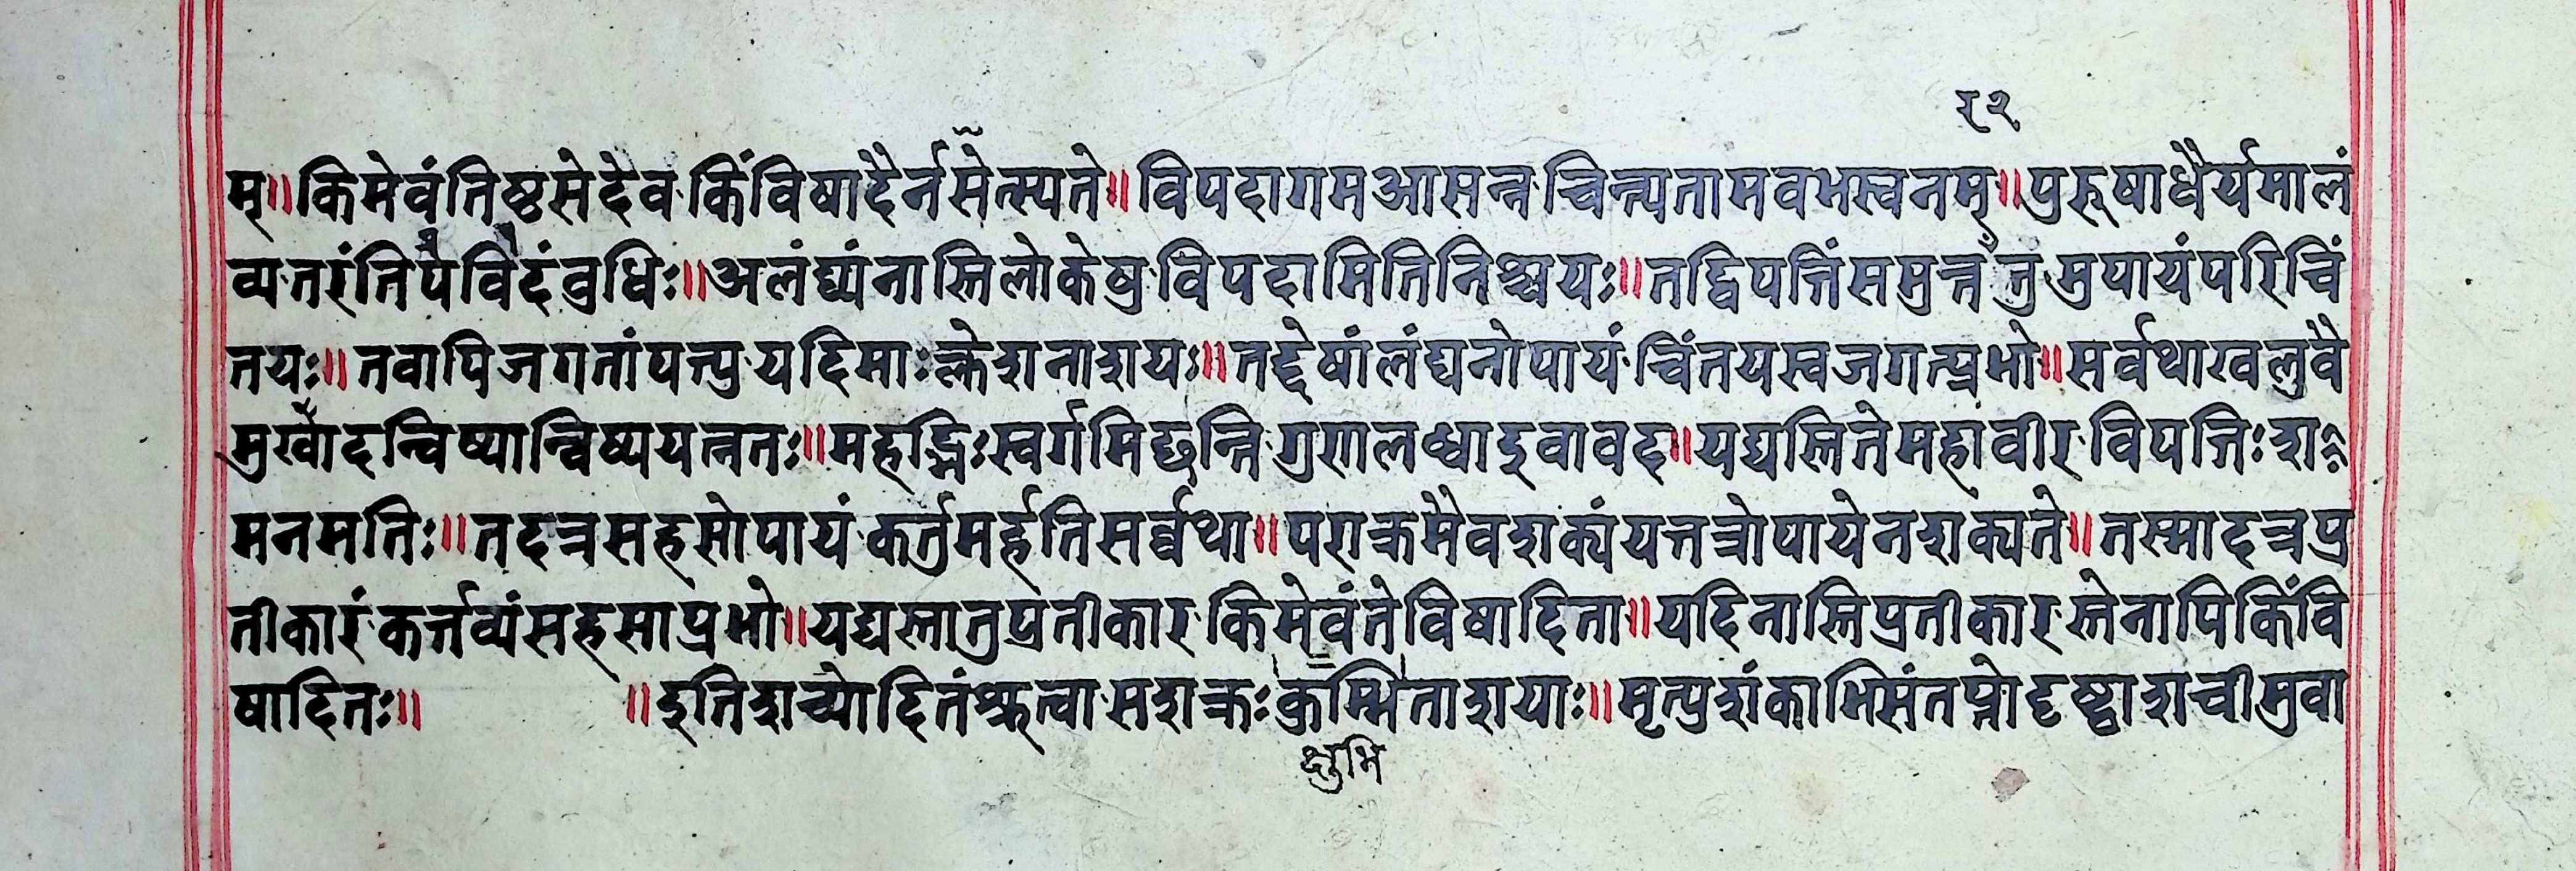 १२
म्॥किमेवंतिष्ठसेदेव किंविषादैर्नसेत्स्यते॥विपदागमआसन्न चिन्त्यतामवभस्वनम्॥पुरूषाधैर्यमालं
व्य तरंतिपैविदंवुधिः॥अलंघ्यंनास्तिलोकेषु विपदामितिनिश्चयः॥तद्विपत्तिंसमुत्तर्त्तुमुपायंपरिचिं
तयः॥तवापिजगतांपत्यु यदिमाःक्लेशनाशयः॥तद्द्वेषांलंघनोपायं चिंतयस्वजगत्प्रभो॥सर्वथाखलुवै
मुर्खोदन्विष्यान्विष्ययत्नतः॥महद्भिःस्वर्गमिछन्ति गुणालध्वाइवावद्॥यद्यस्तितेमहावीर विपत्तिःशा
मनमतिः॥तदत्रसहसोपायं कर्तुमर्हतिसर्व्वथा॥पराक्रमैवशक्यंयत्तत्रोपायेनशक्यते॥तस्मादत्रप्र
तीकारं कर्त्तव्यंसहसाप्रभो॥यद्यस्तातुप्रतीकार किमेवंतेविषादिता॥यदिनास्तिप्रतीकारस्तेनापिकिंवि
षादितः॥ ॥इतिशच्योदितंश्रुत्वा सशक्रःकुम्भिताशयाः॥मृत्युशंकाभिसंतप्तोदृष्ट्वाशचीमुवा
क्षुभि